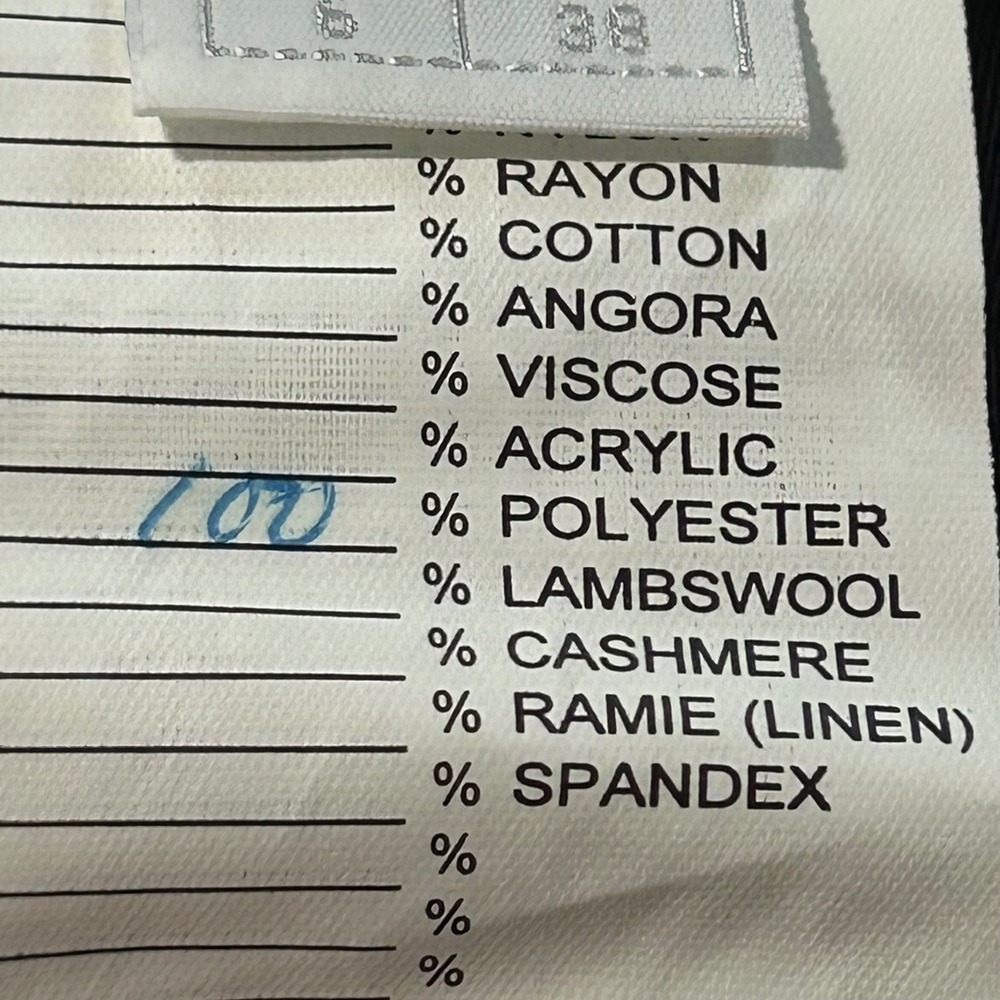 6 38
% RAYON
% COTTON
% ANGORA
% VISCOSE
% ACRYLIC
100 % POLYESTER
% LAMBSWOOL
% CASHMERE
% RAMIE (LINEN)
% SPANDEX
%
%
%